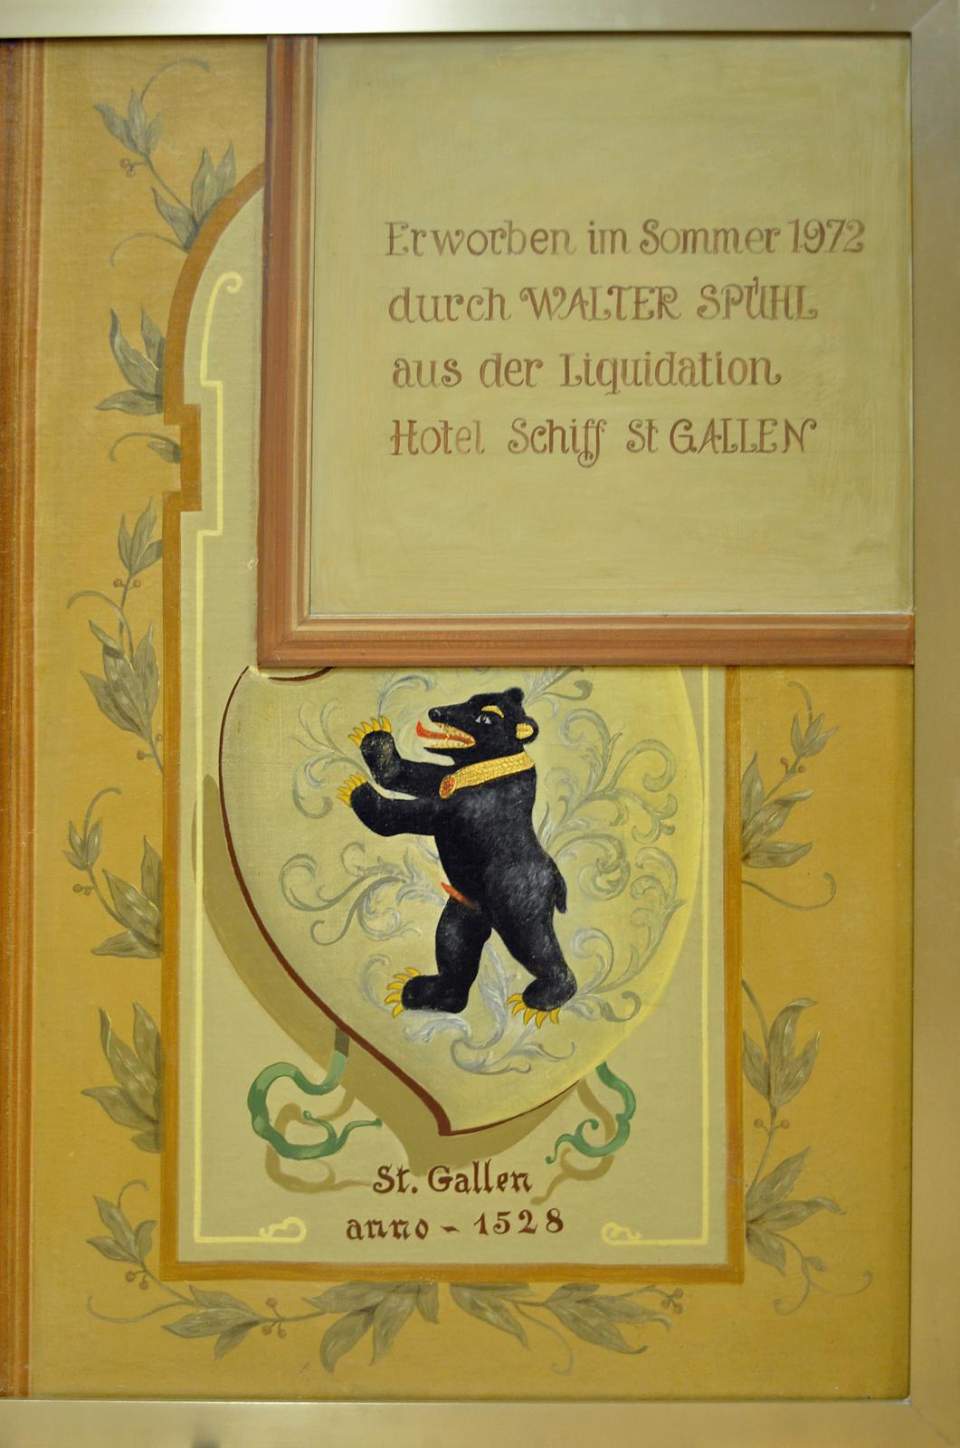 Erworben im Sommer 1972
durch WALTER SPÜHL
aus der Liquidation
Hotel Schiff St GALLEN
St. Gallen
anno - 1528